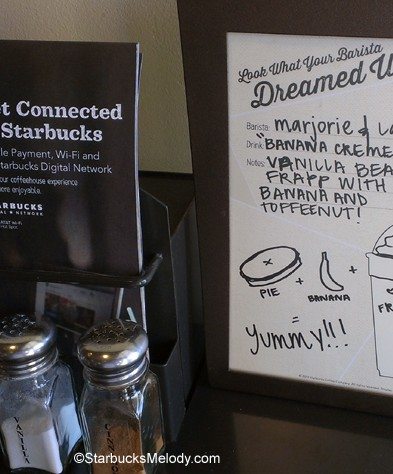 et Connected
Starbucks
le Payment, Wi-Fi and
tarbucks Digital Network
your coffeehouse experience
more enjoyable.
ARBUCKS
AL NETWORK
Look What Your Barista
Dreamed U
Barista: marjorie & La
Drink: "BANANA CREME
Notes: VANILLA BEA
FRAPP WITH
BANANA AND
TOFFEENUT!
PIE + BANANA +
FR
=
yummy!!!
VANILLA
©StarbucksMelody.com